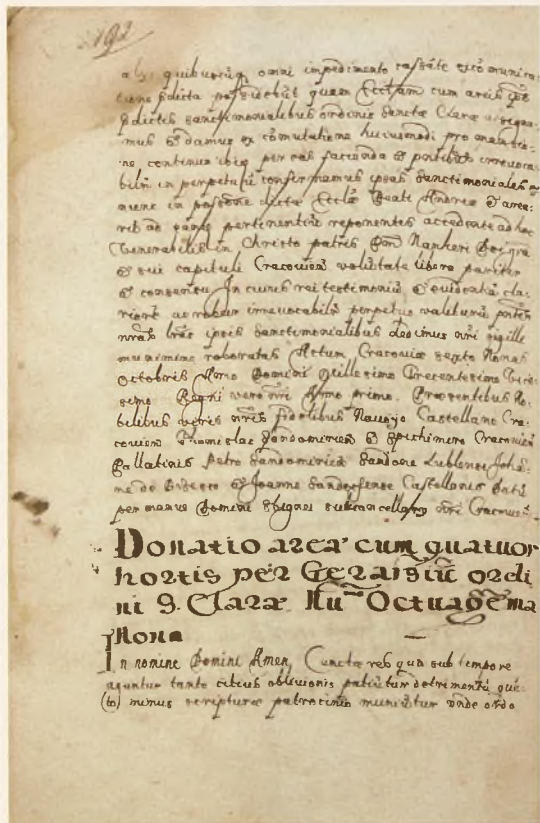 192
quibuscunq omni impedimento cessāte
edicta possidebūt quam Ecclām cum areis
pdictis sanctimonialibus ordinis Sanctæ Claræ assigna-
mus et damus ex comutatione huiusmodi pro
ne continua ibiq per eas facienda et
bilr in perpetuū confirmamus ipsas Sanctimoniales
nunc in possone dictæ Ecclæ Beati Andreæ et area-
rū ad eam pertinentiū reponentes accedente ad hoc
Venerabilis in Christo patris Dnī Nankeri Dei gra
et sui capituli Cracovień volūtate libera pariter
et consensu. In cuius rei testimoniū et evidentiā cla-
riorē ac robur irrevocabilr perpetuo valiturū
nrās lrās ipsis sanctimonialibus dedimus nrī sigilli
munimine roboratas Actum, Cracoviæ sexto Nonas
Octobris Anno Domini Millesimo Trecentesimo Vice-
simo Regni vero nrī Anno primo. Præsentibus No-
bilibus viris nrīs fidelibus Navojo Castellano Cra-
covień Sandomirień et Spichimero Cracovień
Pallatinis Petro Sandomirień Lublensi Johā-
ne de et Joanne Sandecense Castellanis
per manus Domini Sbignei subcancellarij nrī Cracovień
Donatio areæ cum quatuor
hortis per ordi
ni S. Claræ Nu Octuagema
Nona
In nomine Domini Amen, Cunctæ res quæ sub tempore
aguntur tanto citius oblivionis patiūtur detrimentū quā-
(to) minus scripturæ patrocinio muniūtur unde ordo